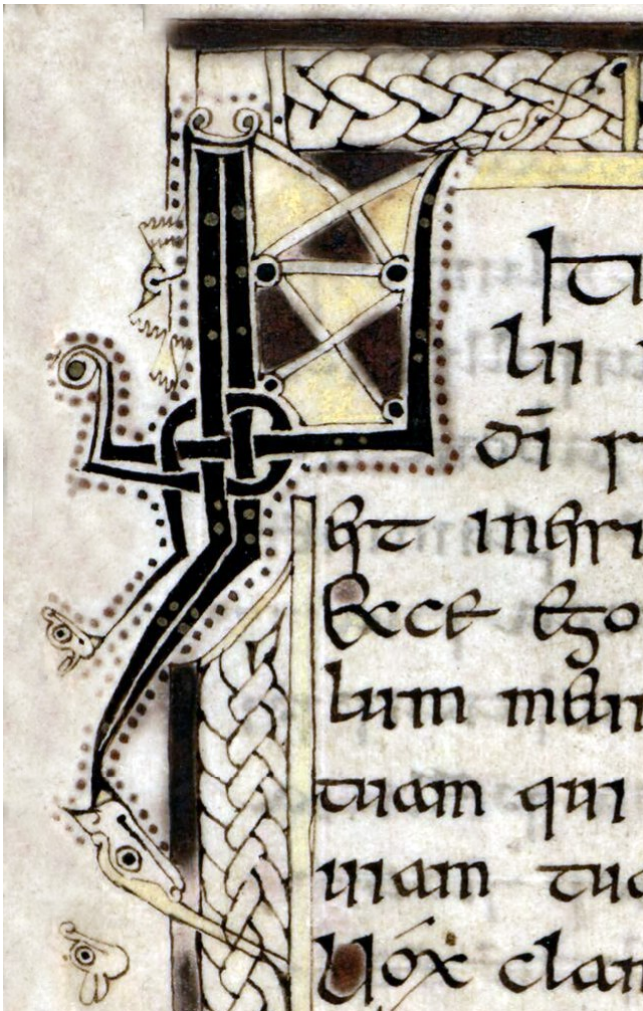 INIti
lii
dī s
est in esi
Ecce ego
lum meum
tuam qui
uiam tua
Uox clam